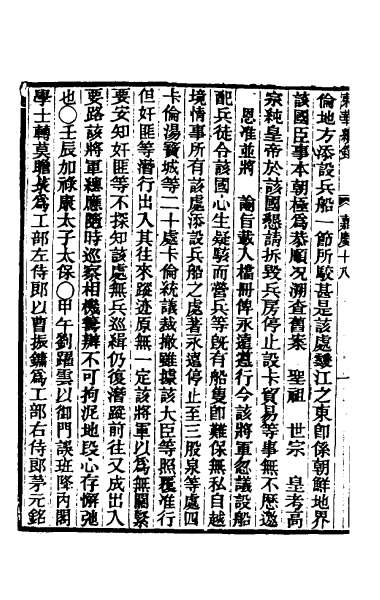 東華續錄 嘉慶十八
倫地方添設兵船一節所駮甚是該處靉江之東卽係朝鮮地界
該國臣事本朝極爲恭順况溯查舊案 聖祖 世宗 皇考高
宗純皇帝於該國懇請拆毁兵房停止設卡貿易等事無不歷邀
恩准並將 諭旨載入檔冊俾永遠遵行今該將軍忽議設船
配兵徒令該國心生疑駭而營兵等旣有船隻卽難保無私自越
境情事所有該處添設兵船之處著永遠停止至三股泉等處四
卡倫湯寶城等二十處卡倫統議裁撤雖據該大臣等照覆准行
但奸匪等潛行出入其往來蹤迹原無一定該將軍以爲無關緊
要安知奸匪等不探知該處無兵巡緝仍復潛蹤前往又成出入
要路該將軍總應隨時巡察相機籌辦不可拘泥地段心存懈弛
也○壬辰加祿康太子太保○甲午劉躍雲以御門誤班降內閣
學士轉莫瞻菉爲工部左侍郎以曹振鏞爲工部右侍郎茅元銘